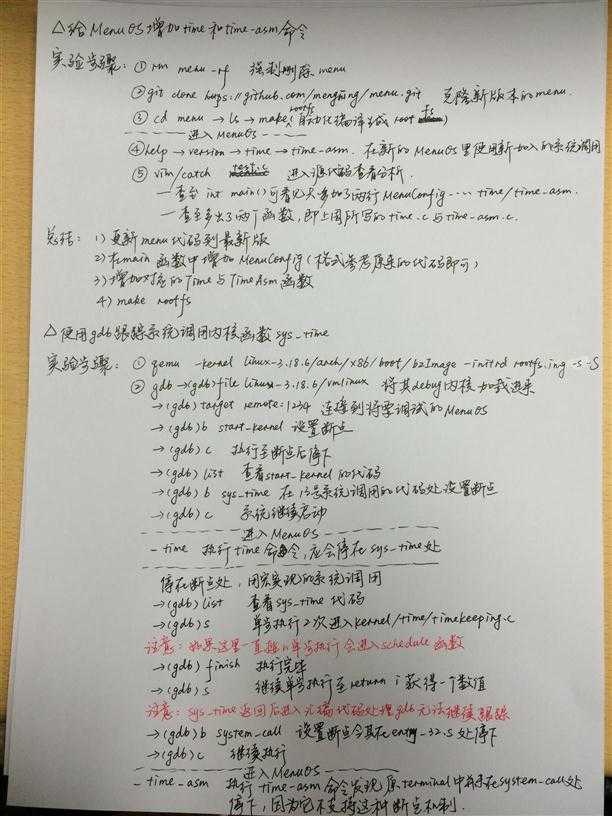 △给MenuOS增加time和time-asm命令
实验步骤：① rm menu -rf 强制删除menu
②git clone https://github.com/mengning/menu.git 克隆新版本的menu.
③ cd menu → ls → make rootfs (自动化编译生成 root fs)
进入MenuOS
④help → version → time → time-asm. 在新的MenuOS里使用新加入的系统调用
⑤ vim/catch test.c 进入源代码查看分析.
—查至 int main()可看见只增加了两行MenuConfig···· time/time-asm.
—查至多出了两个函数,即上周所写的time.c与time-asm.c.
总结：1)更新menu代码到最新版
2)在main函数中增加MenuConfig(格式参考原来的代码即可)
3)增加对应的Time与TimeAsm函数
4) make rootfs
△使用gdb跟踪系统调用内核函数sys_time
实验步骤：① qemu -kernel linux-3.18.6/arch/x86/boot/bzImage -initrd rootfs.img -s -S
② gdb →(gdb)file linux-3.18.6/vmlinux 将其debug内核加载进来
→(gdb) target remote:1234 连接到将要调试的MenuOS
→(gdb) b start_kernel 设置断点
→(gdb) c 执行至断点后停下
→(gdb) list 查看start_kernel的代码
→(gdb) b sys_time 在13号系统调用的代码处设置断点
→(gdb) c 系统继续启动
进入MenuOS
- time 执行time命令,应会停在sys_time处
停在断点处,用宏实现的系统调用
→(gdb) list 查看sys_time代码
→(gdb) s 单步执行2次进入kernel/time/timekeeping.c
注意：如果这里一直按n单步执行会进入schedule函数
→(gdb) finish 执行完毕
→(gdb) s 继续单步执行至return i获得一个数值
注意：sys_time返回后进入汇编代码处理gdb无法继续跟踪
→(gdb) b system_call 设置断点令其在entry_32.S处停下
→(gdb) c 继续执行
进入MenuOS
- time_asm 执行time-asm命令发现原terminal中并未在system-call处
停下,因为它不支持这种断点机制.